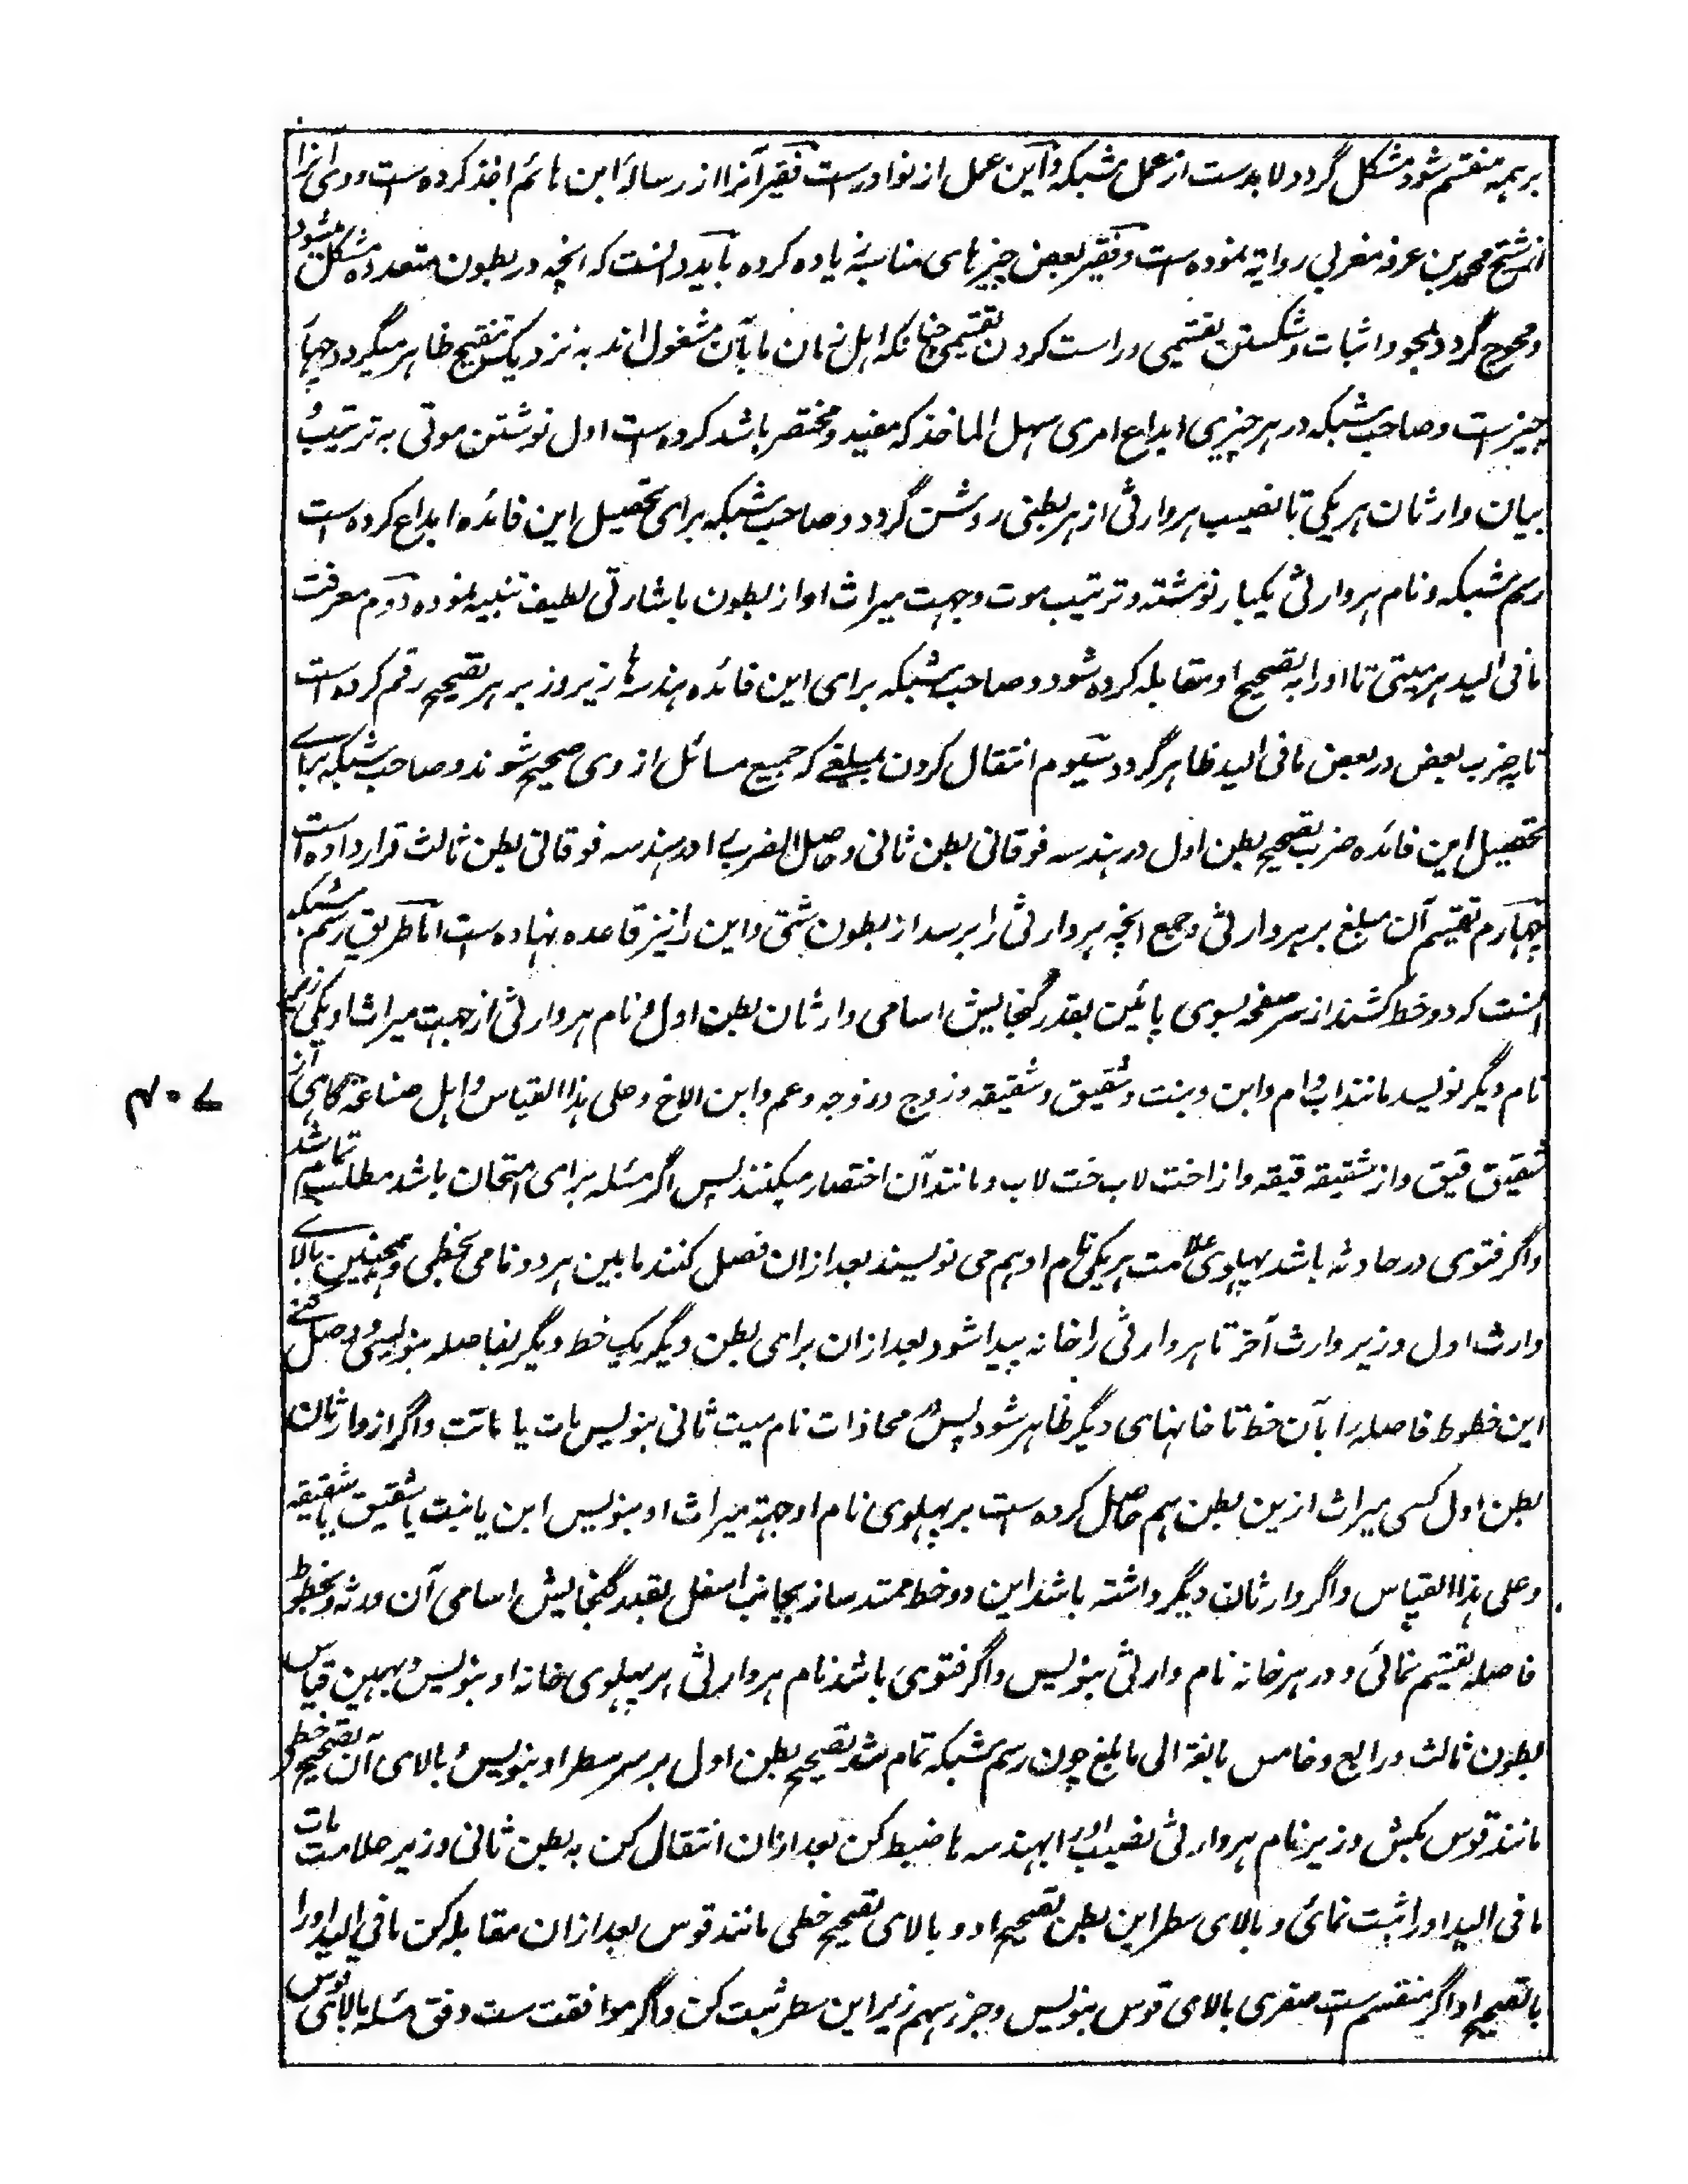 بر همه منقسم شود مشکل گردد لابدست از عمل شبکه و این عمل از نوادرست فقیر آنرا از رسالۀ ابن هائم اخذ کرده است و وی آنرا
از شیخ محمد بن عرفه مغربی روایة نموده است و فقیر بعض چیزهای مناسبه زیاده کرده باید دانست که آنچه در بطون متعدده مشکل میشود
و محوج گردد بمحو و اثبات و شکستن تقسیمی و راست کردن تقسیمی چنانکه اهل زمان ما بآن مشغول اند به نزدیک تنقیح ظاهر میگردد چهار
چیزست و صاحب شبکه در هر چیزی ابداع امری سهل الماخذ که مفید و مختصر باشد کرده است اول نوشتن موتی به ترتیب و
بیان وارثان هر یکی تا نصیب هر وارثی از هر بطنی روشن گردد و صاحب شبکه برای تحصیل این فائده ابداع کرده است
رسم شبکه و نام هر وارثی یکبار نوشته و ترتیب موت و جهت میراث او از بطون باشارتی لطیف تنبیه نموده دوم معرفت
ما فی الید هر میتی تا او را به تصحیح او مقابله کرده شود و صاحب شبکه برای این فائده هندسها زیر و زبر هر تصحیح رقم کرده است
تا بضرب بعض در بعض ما فی الید ظاهر گردد سیوم انتقال کردن بمبلغی که جمیع مسائل از وی صحیح شوند و صاحب شبکه برای
تحصیل این فائده ضرب تصحیح بطن اول در هندسه فوقانی بطن ثانی و حاصل الضرب را در هندسه فوقانی بطن ثالث قرار داده است
چهارم تقسیم آن مبلغ بر هر وارثی و جمع آنچه هر وارثی را برسد از بطون شتی و این را نیز قاعده نهاده است اما طریق رسم شبکه
آنست که دو خط کشند از سر صفحه بسوی پائین بقدر گنجایش اسامی وارثان بطن اول و نام هر وارثی از جهت میراث او یکی زیر
نام دیگر نویسد مانند اب و ام و ابن و بنت و شقیق و شقیقه و زوج و زوجه و عم و ابن الاخ و علی هذا القیاس و اهل صناعة گاهی از
شقیق قیق و از شقیقه قیقه و از اخت لاب خت لاب و مانند آن اختصار میکنند پس اگر مسئله برای امتحان باشد مطلب تمام شد
و اگر فتوی در حادثه باشد بپهلوی علامت هر یکی نام او هم می نویسند بعد از ان فصل کنند مابین هر دو نامی بخطی و همچنین بالای
وارث اول و زیر وارث آخر تا هر وارثی را خانه پیدا شود بعد از ان برای بطن دیگر یک خط دیگر بفاصله بنویسی و وصل کنی
این خطوط فاصله را بآن خط تا خانهای دیگر ظاهر شود پس در محاذات نام میت ثانی بنویس مات یا ماتت و اگر از وارثان
بطن اول کسی میراث ازین بطن هم حاصل کرده است بر پهلوی نام او جهة میراث او بنویس ابن یا بنت یا شقیق یا شقیقه
و علی هذا القیاس و اگر وارثان دیگر داشته باشد این دو خط ممتد ساز بجانب اسفل بقدر گنجایش اسامی آن ورثه و بخطوط
فاصله تقسیم نمائی و در هر خانه نام وارثی بنویس و اگر فتوی باشد نام هر وارثی بر پهلوی خانه او بنویس و بهمین قیاس
بطون ثالث و رابع و خامس بالغة الی ما بلغ چون رسم شبکه تمام شد تصحیح بطن اول بر سر سطر او بنویس و بالای آن تصحیح خطی
مانند قوس بکش و زیر نام هر وارثی نصیب او را بهندسه ها ضبط کن بعد از ان انتقال کن به بطن ثانی و زیر علامت مات
ما فی الید او را ثبت نمائی و بالای سطر این بطن تصحیح او و بالای تصحیح خطی مانند قوس بعد از ان مقابله کن ما فی الید او را
با تصحیح او اگر منقسم ست صفری بالای قوس بنویس و جزء سهم زیر این سطر ثبت کن و اگر موافقت ست وفق مسئله بالای قوس
۴۰۷